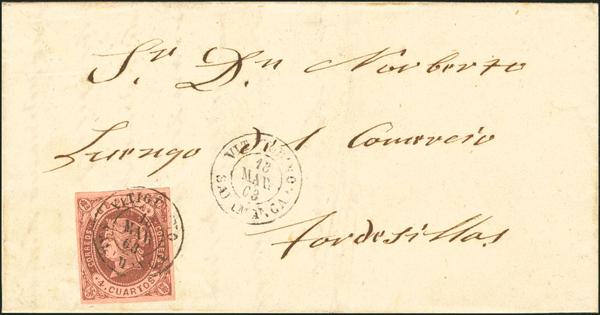 Sr. Dn Norberto
Luengo del Comercio
Tordesillas
VITIGUDINO
13
MAR
63
SALAMANCA
CORREOS
4 CUARTOS